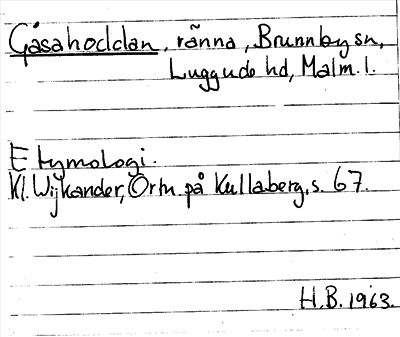 Gåsahoddan, ränna, Brunnby sn,
Luggude hd, Malm. l.
Etymologi.
Kl. Wijkander, Ortn. på Kullaberg, s. 67.
H.B. 1963.